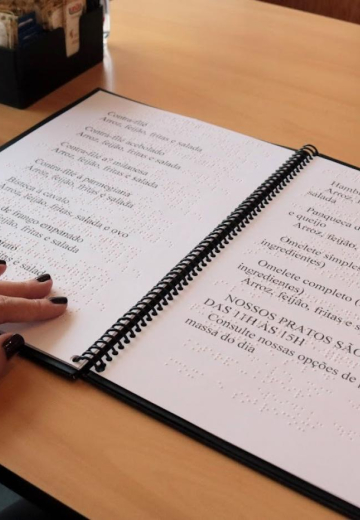 Contra-filé
Arroz, feijão, fritas e salada
Contra-filé acebolado
Arroz, feijão, fritas e salada
Contra-filé a milanesa
Arroz, feijão, fritas e salada
Contra-filé à parmegiana
Arroz, feijão, fritas e salada
a cavalo
feijão, fritas, salada e ovo
de frango empanado
feijão, fritas e salada
fritas e salada
Arroz
salada
Panqueca d
e queijo
Arroz, feijão,
Omelete simpl
ingredientes)
Omelete completo
ingredientes)
Arroz, feijão, fritas e s
NOSSOS PRATOS SÃO
DAS 11H ÀS 15H
Consulte nossas opções de
massa do dia